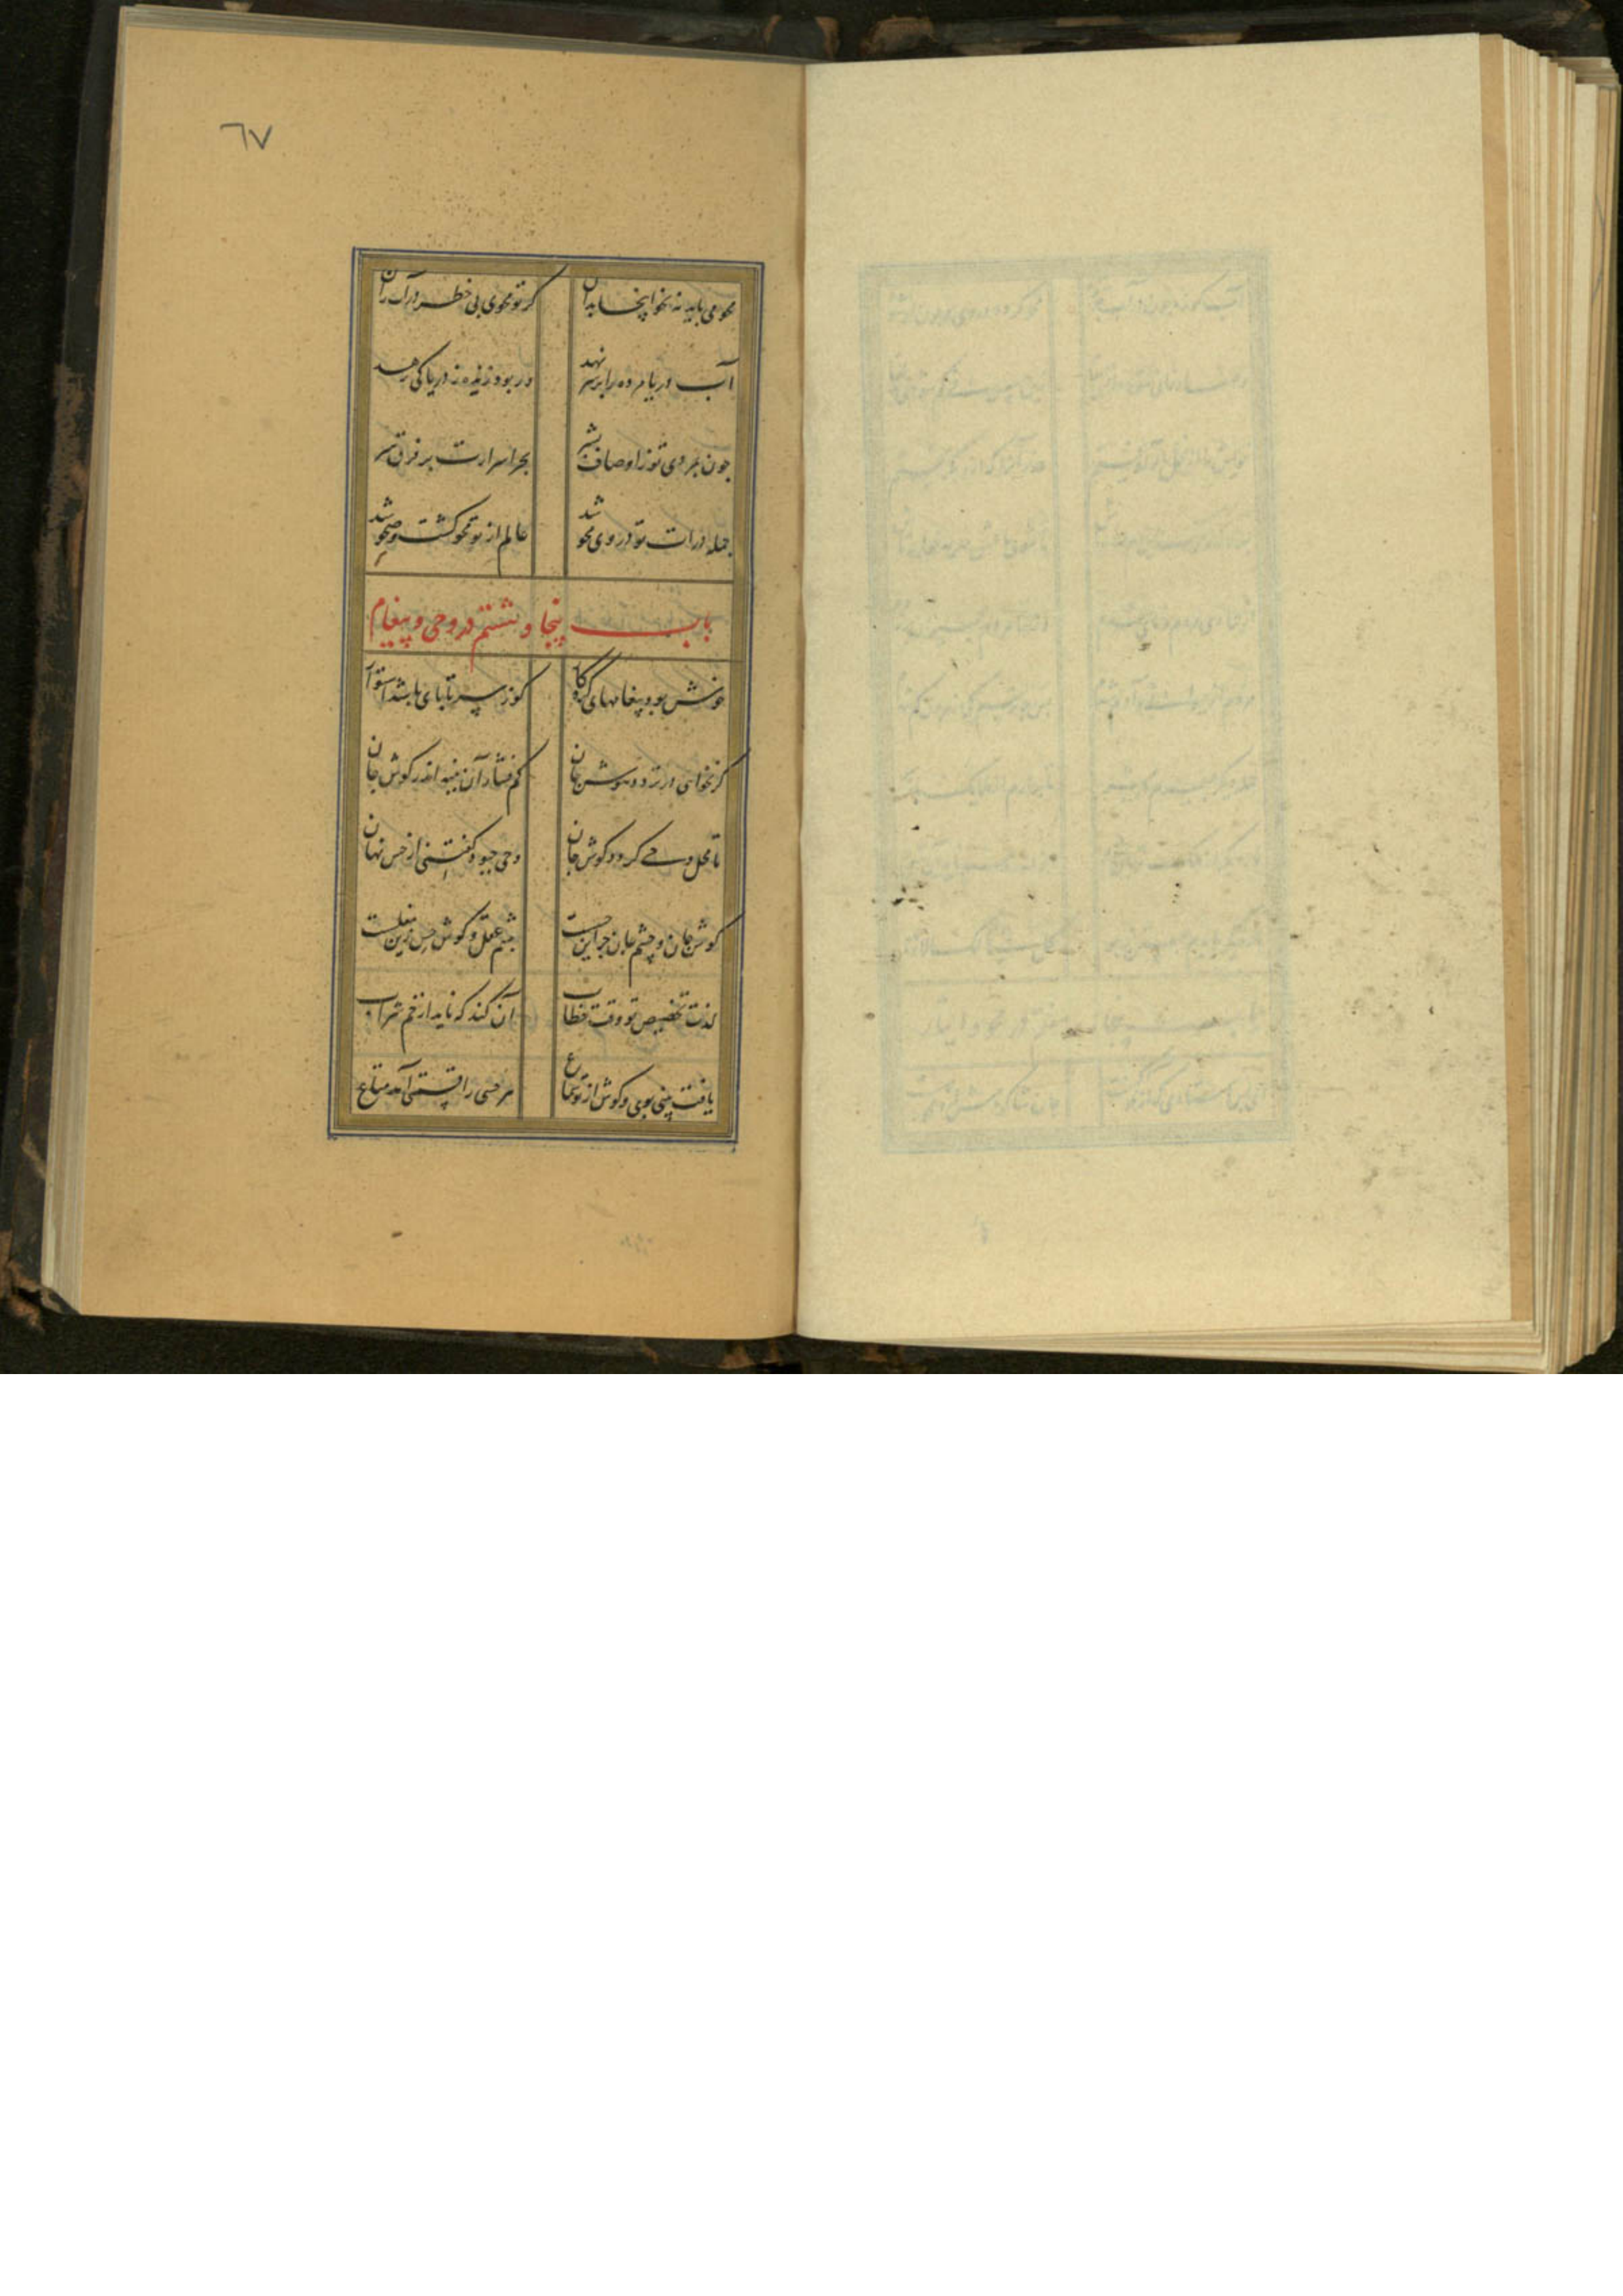 ٦٧
محو می باید نه نحو اینجا بدان
کر تو محوی بی خطر در آب ران
آب دریا مرده را بر سر نهد
ور بود زنده ز دریا کی رهد
چون بمردی تو ز اوصاف بشر
بحر اسرارت بر فرق سر
جمله ذرات تو در وی محو شد
عالم از تو محو کشت و صحو شد
باب پنجا و ششم در وحی و پیغام
خوش بود پیغامهای کردکار
کو ز سر تا پای باشد استوار
کر نخواهی در تردد هوش جان
کم فشار آن پنبه اندر کوش جان
تا محل وحی کردد کوش جان
وحی چبود کفتنی از حس نهان
کوش جان و چشم جان جز این حس است
چشم عقل و کوش حس زین مفلست
لذت تخصیص تو وقت خطاب
آن کند که ناید از خم شراب
یافت بینی بوی و کوش از تو سماع
هر حسی را قسمتی آمد متاع